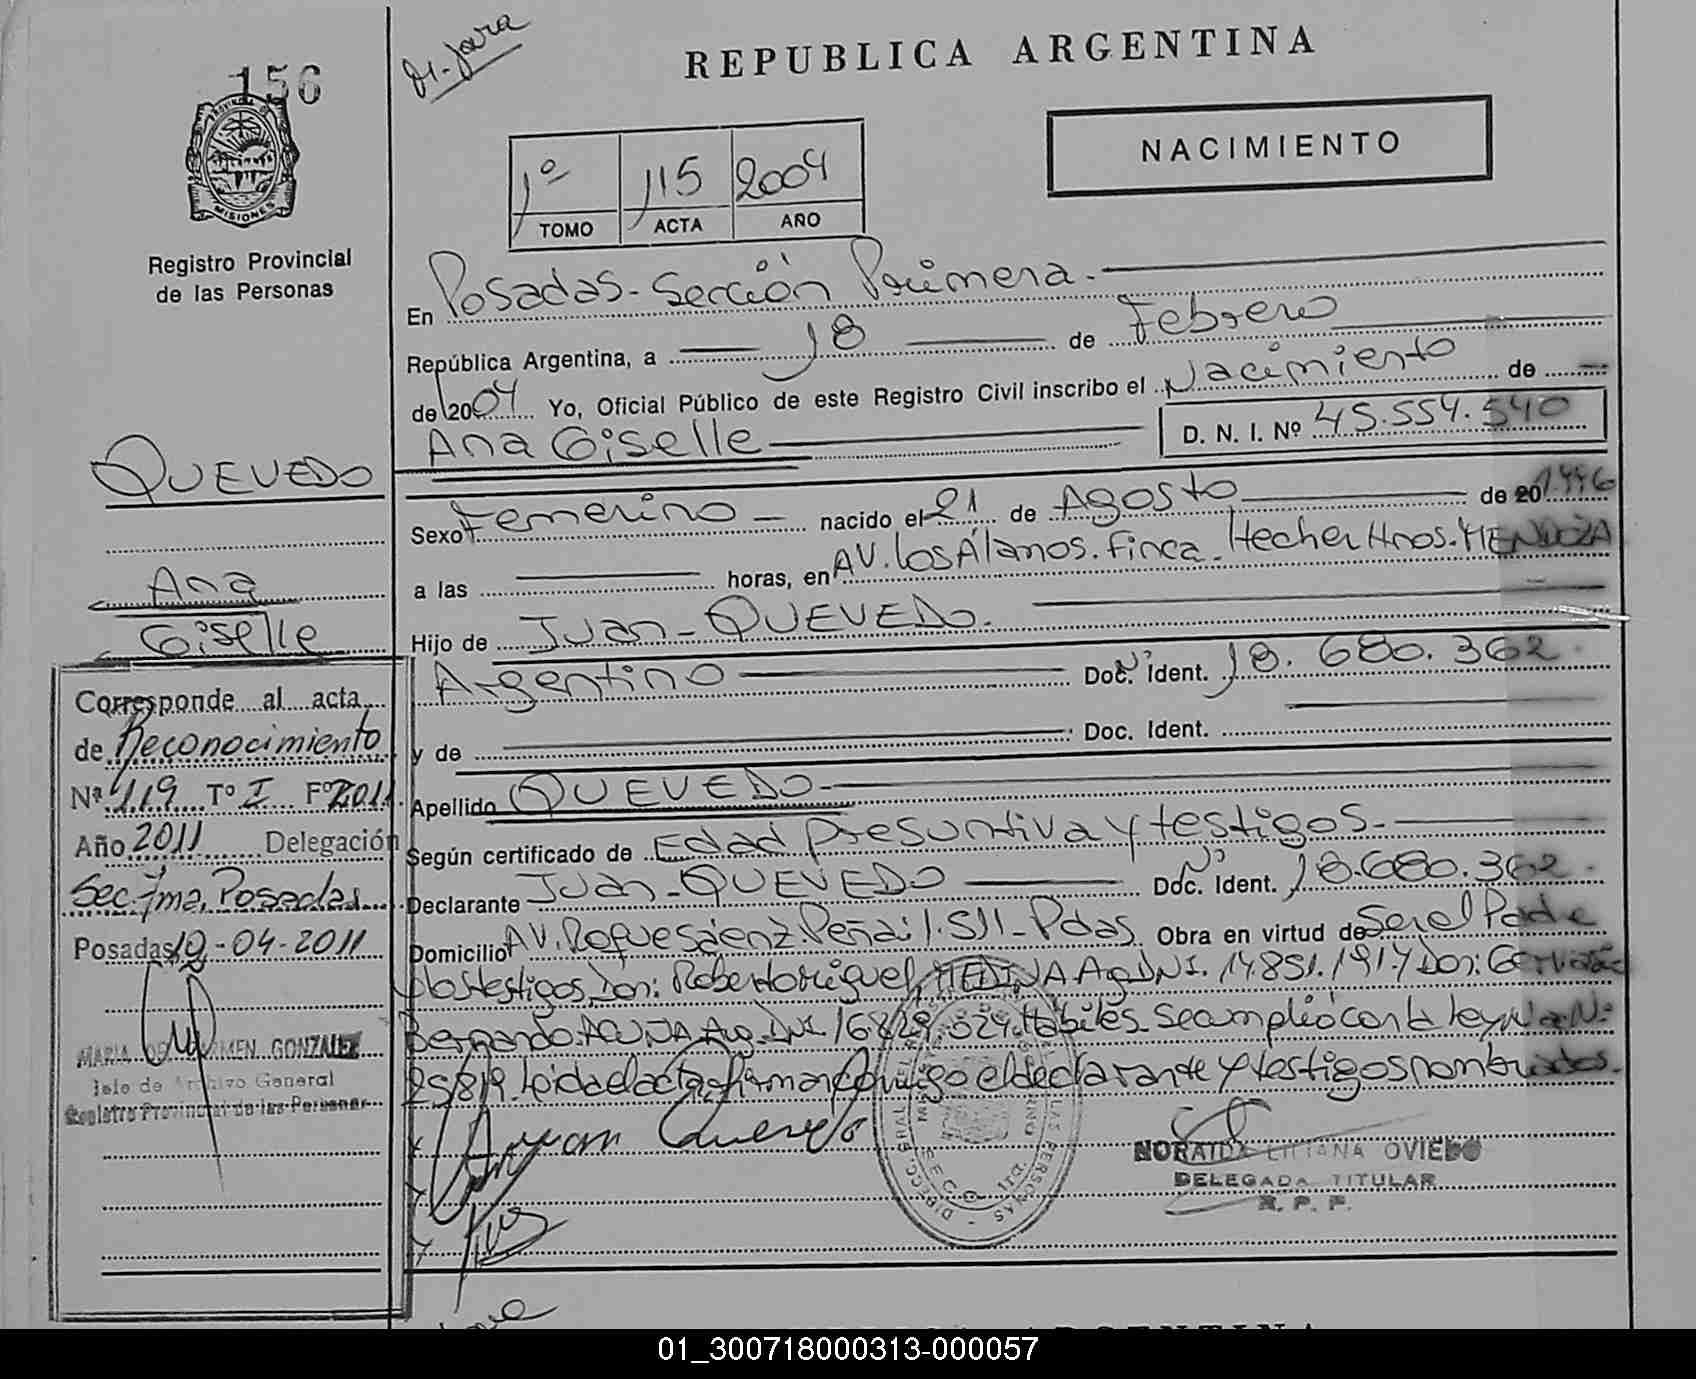 156
M. Jara
REPUBLICA ARGENTINA
NACIMIENTO
1º 115 2004
TOMO ACTA AÑO
PROVINCIA DE
MISIONES
Registro Provincial
de las Personas
En Posadas - Sección Primera.
República Argentina, a 18 de Febrero
de 2004 Yo, Oficial Público de este Registro Civil inscribo el Nacimiento de
Ana Giselle D. N. I. Nº 45.554.540
QUEVEDO
Ana
Giselle
Sexo Femenino nacido el 21 de Agosto de 20 1996
a las horas, en AV. Los Álamos. Finca. Hecher Hnos. MENDOZA
Hijo de Juan - QUEVEDO.
Argentino Doc. Nº Ident. 18.680.362.
y de Doc. Ident.
Apellido QUEVEDO
Según certificado de Edad Presuntiva y testigos.
Declarante Juan - QUEVEDO Doc. Nº Ident. 18.680.362.
Domicilio AV. Roque Sáenz Peña: I. S/I - Pdas. Obra en virtud de Ser el Padre
y los testigos, Don: Roberto Miguel MEDINA Arg. DNI. 14.851.191 y Don:
Bernardo ACUÑA Arg. DNI. 16.829.024. Hábiles. Se amplió con la ley Na. Nº
25819. Leída el acta, firman conmigo el declarante y testigos nombrados.
Juan Quevedo
NORAIDA LILIANA OVIEDO
DELEGADA TITULAR
R. P. P.
Corresponde al acta
de Reconocimiento
Nº 119 Tº I Fº 2011
Año 2011 Delegación
Sec. 1ma. Posadas
Posadas 19-04-2011
MARIA DEL CARMEN GONZALEZ
Jefe de Archivo General
Registro Provincial de las Personas
REPUBLICA ARGENTINA
01_300718000313-000057